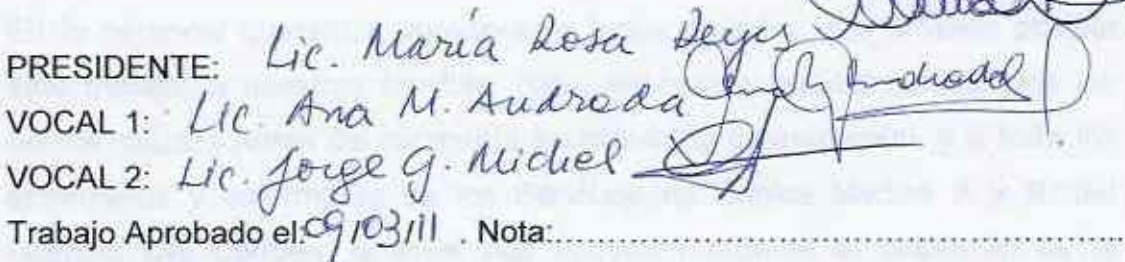 PRESIDENTE: Lic. María Rosa Reyes
VOCAL 1: Lic. Ana M. Andrada
VOCAL 2: Lic. Jorge G. Michel
Trabajo Aprobado el: 09/03/11 . Nota:........................................................